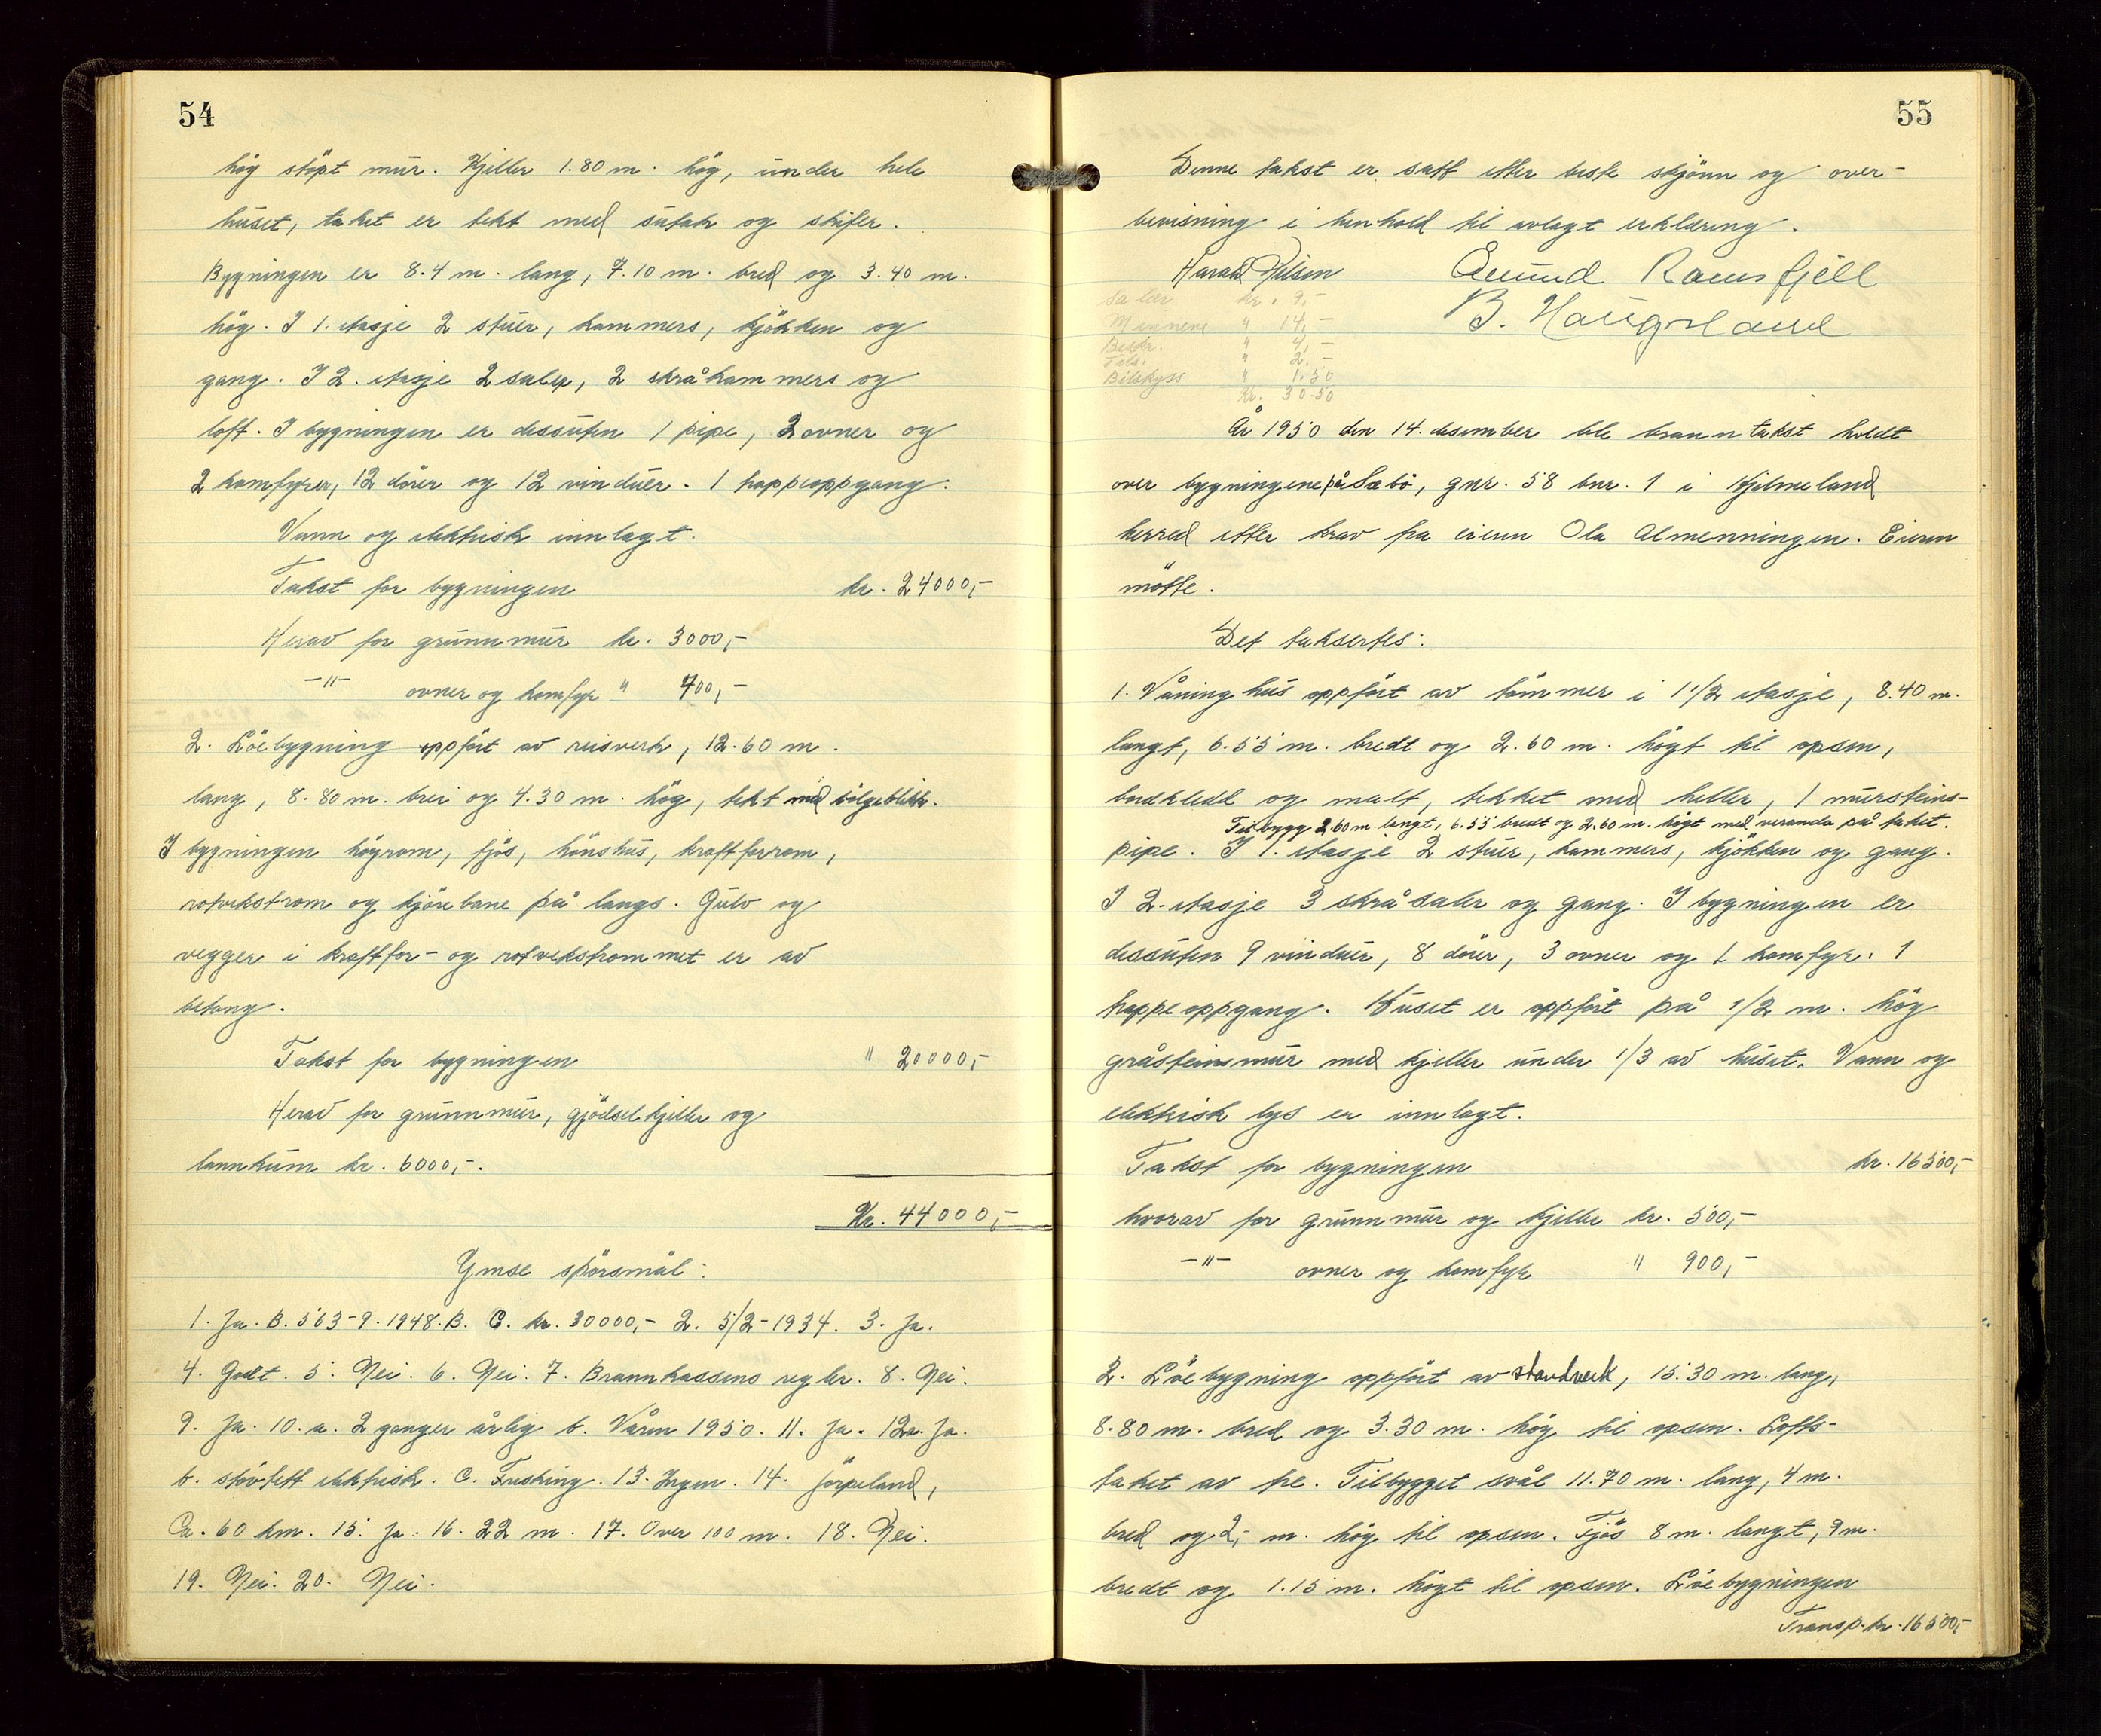 54
hög stöpt mur. Kjeller 1.80 m. hög, under hele
huset, taket er tekt med sutak og skifer.
Bygningen er 8.4 m. lang, 7.10 m. bred og 3.40 m.
hög. I 1. etasje 2 stuer, kammers, kjökken og
gang. I 2. etasje 2 saler, 2 skråkammers og
loft. I bygningen er dessuten 1 pipe, 2 ovner og
2 komfyrer, 12 dörer og 12 vinduer. 1 trappeoppgang.
Vann og elektrisk innlagt.
Takst for bygningen kr. 24000,-
Herav for grunnmur kr. 3000,-
-"- ovner og komfyr " 700,-
2. Löebygning oppfört av reisverk, 12.60 m.
lang, 8.80 m. brei og 4.30 m. hög, tekt med bölgeblikk.
I bygningen högrom, fjös, hönshus, kraftforrom,
rotvekstrom og kjörebane på langs. Gulv og
vegger i kraftfor- og rotvekstrommet er av
betong.
Takst for bygningen " 20000,-
Herav for grunnmur, gjödselkjeller og
lannkum kr. 6000,-.
Kr. 44000,-
Ymse spörsmål:
1. Ja. B. 563-9. 1948. B. C. kr. 30000,- 2. 5/2-1934. 3. Ja.
4. Godt. 5. Nei. 6. Nei. 7. Brannkassens regler. 8. Nei.
9. Ja. 10. a. 2 ganger årlig b. Våren 1950. 11. Ja. 12a. Ja.
b. stövtett elektrisk. C. Trusking. 13. Ingen. 14. Jörpeland,
Ca. 60 km. 15. Ja. 16. 22 m. 17. Over 100 m. 18. Nei.
19. Nei. 20. Nei.
55
Denne takst er satt etter beste skjönn og over-
bevisning i henhold til avlagt erklæring.
Harald Nilsen Åmund Ramsfjell
B. Haugsland
Salær kr. 9,-
Mennene " 14,-
Beskr. " 4,-
Tels. " 2.-
Bilskyss " 1.50
Kr. 30.50
År 1950 den 14. desember ble branntakst holdt
over bygningene på Sæbö, gnr. 58 bnr. 1 i Hjelmeland
herred etter krav fra eieren Ola Almenningen. Eieren
mötte.
Det taksertes:
1. Våninghus oppfört av tömmer i 1 1/2 etasje, 8.40 m.
langt, 6.55 m. bredt og 2.60 m. högt til opsen,
bordkledd og malt, tekket med heller, 1 mursteins-
Tilbygg 2.60 m. langt, 6.55 bredt og 2.60 m. högt med veranda på taket.
pipe. I 1. etasje 2 stuer, kammers, kjökken og gang.
I 2. etasje 3 skråsaler og gang. I bygningen er
dessuten 9 vinduer, 8 dörer, 3 ovner og 1 komfyr. 1
trappeoppgang. Huset er oppfört på 1/2 m. hög
gråsteinsmur med kjeller under 1/3 av huset. Vann og
elektrisk lys er innlagt.
Takst for bygningen kr. 16500,-
hvorav for grunnmur og kjeller kr. 500,-
-"- ovner og komfyr " 900,-
2. Löebygning oppfört av standverk, 15.30 m. lang,
8.80 m. bred og 3.30 m. hög til opsen. Lofts-
taket av tre. Tilbygget svål 11.70 m. lang, 4 m.
bred og 2,- m. hög til opsen. Fjös 8 m. langt, 9 m.
bredt og 1.15 m. högt til opsen. Löebygningen
Transp. kr. 16500,-